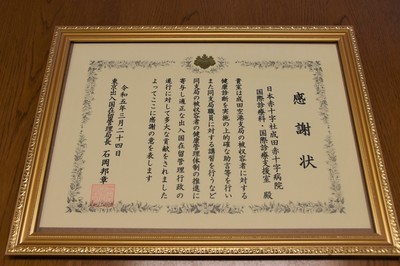 感謝状
日本赤十字社成田赤十字病院
国際診療科・国際診療支援室 殿
貴室は成田空港支局の被収容者に対する
健康診断を実施の上的確な助言等を行い
また同支局職員に対する講習を行うなど
同支局の被収容者の健康管理体制の推進に
寄与し適正な出入国在留管理行政の
遂行に対して多大な貢献をされました
よってここに感謝の意を表します
令和五年三月二十四日
東京出入国在留管理局長 石岡邦章